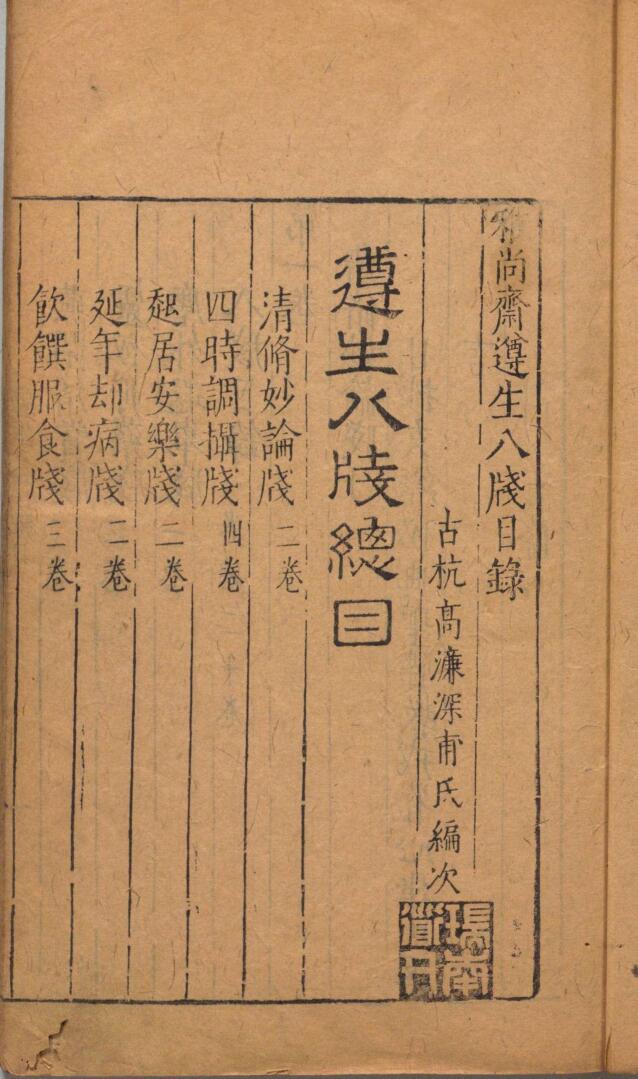 雅尚齋遵生八牋目錄
古杭高濂深甫氏編次
瑞南道人
遵生八牋總目
清脩妙論牋 二卷
四時調攝牋 四卷
起居安樂牋 二卷
延年却病牋 二卷
飲饌服食牋 三卷